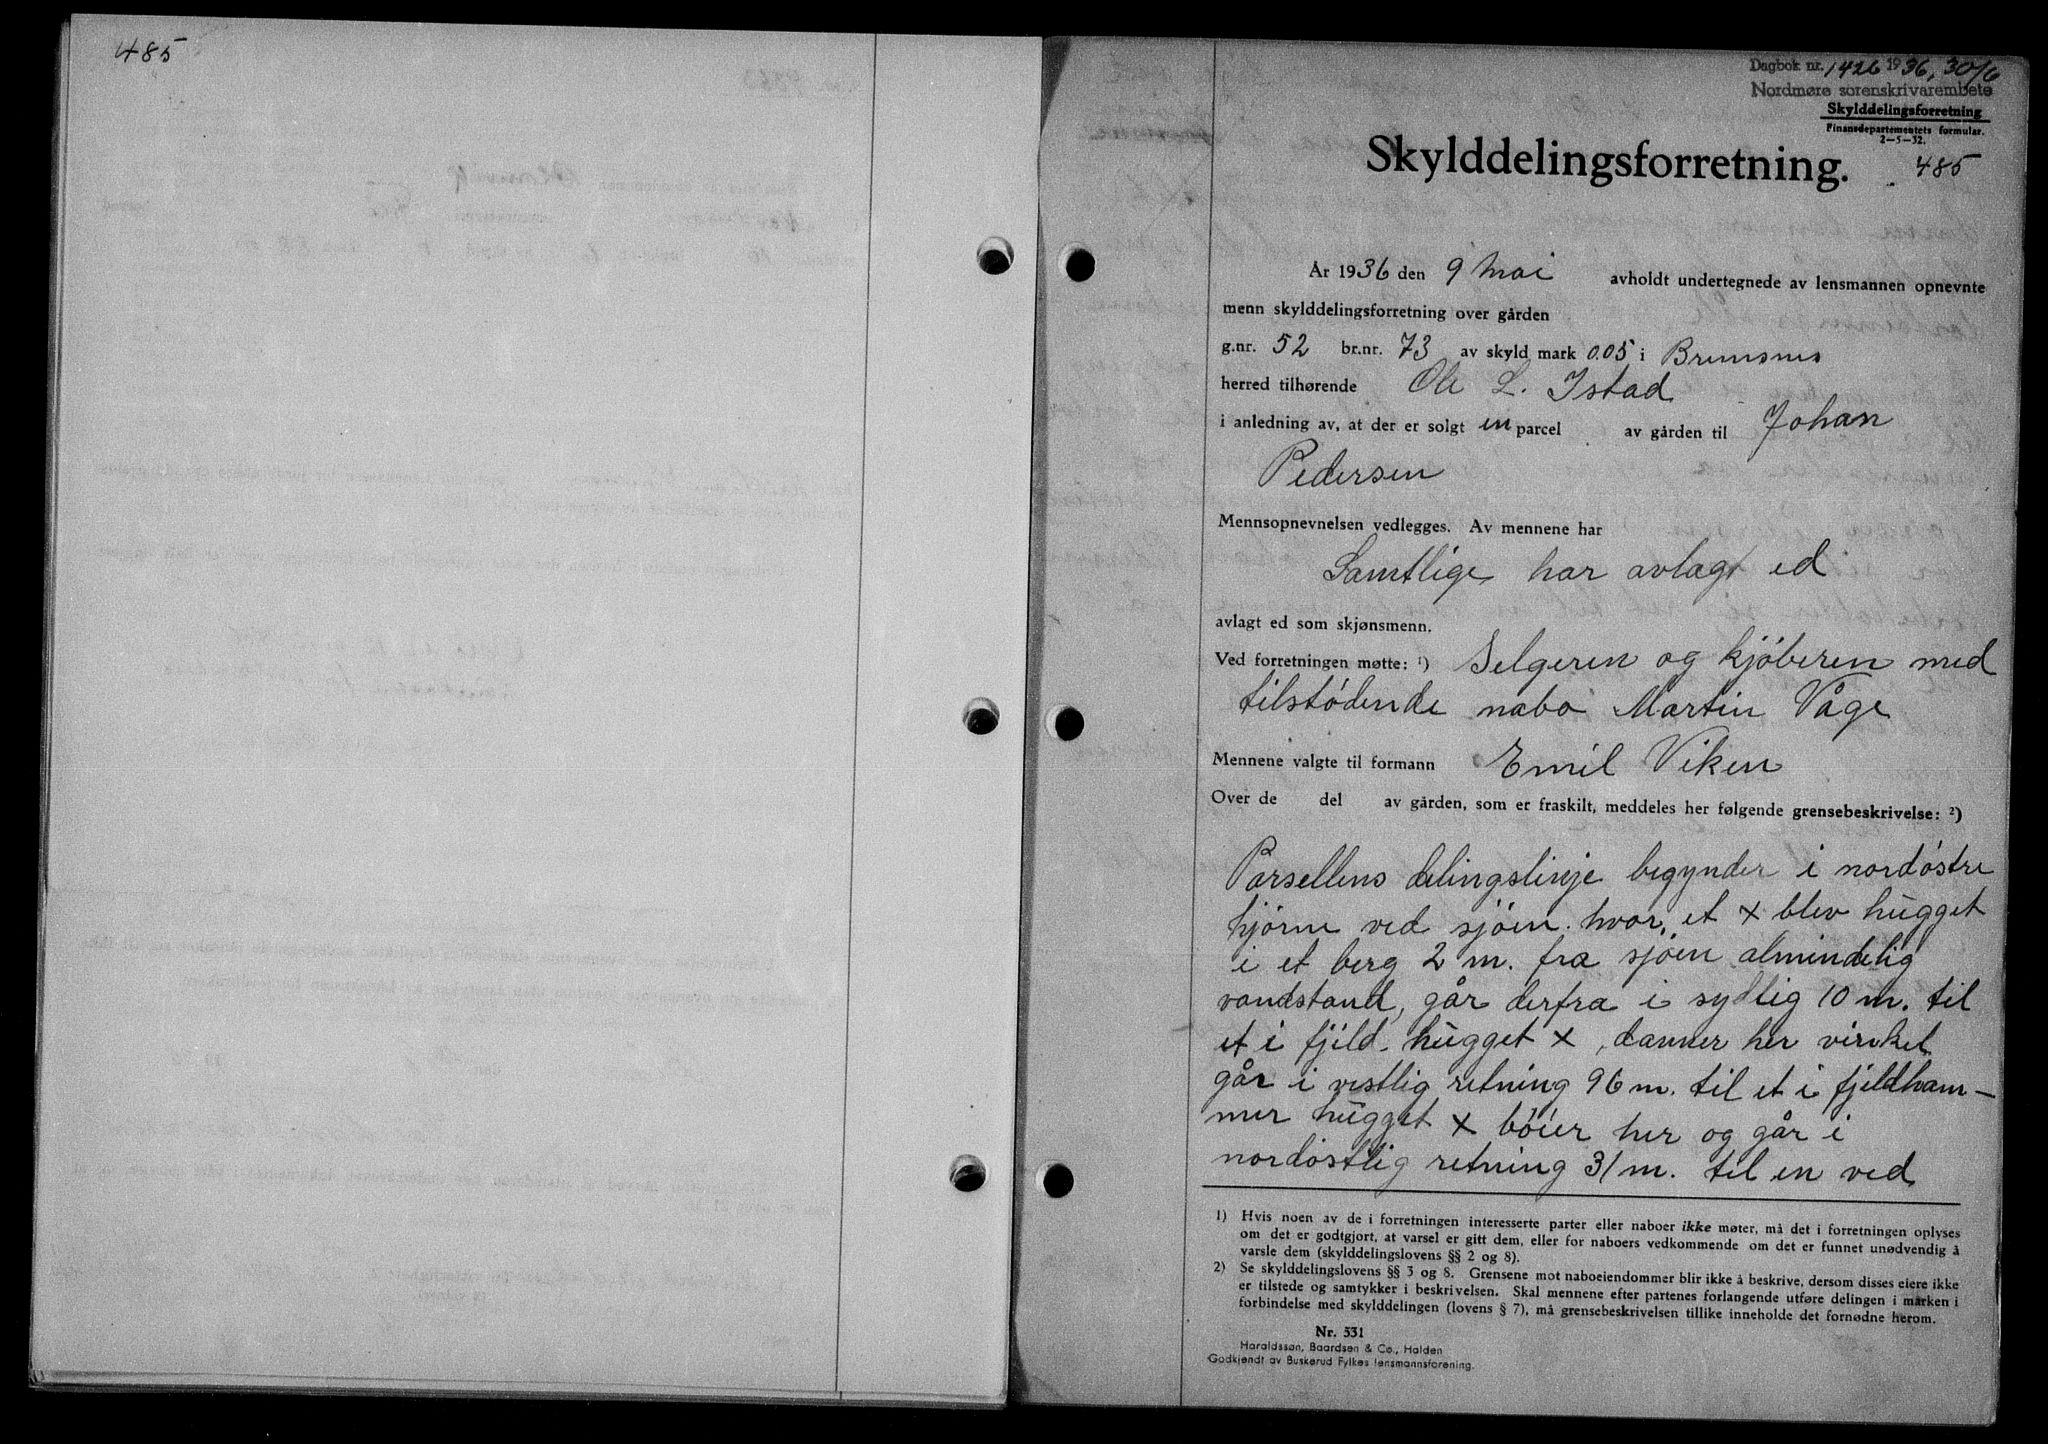 485
Dagbok nr. 1426 1936, 30/6
Nordmøre sorenskrivarembete
Skylddelingsforretning
Finansdepartementets formular.
2-5-32.
Skylddelingsforretning.
485
År 1936 den 9 mai avholdt undertegnede av lensmannen opnevnte
menn skylddelingsforretning over gården
g.nr. 52 br.nr. 73 av skyld mark 0.05 i Bremsnes
herred tilhørende Ole L. Istad
i anledning av, at der er solgt en parcel av gården til Johan
Pedersen
Mennsopnevnelsen vedlegges. Av mennene har
Samtlige har avlagt ed
avlagt ed som skjønsmenn.
Ved forretningen møtte: ¹) Selgeren og kjöberen med
tilstödende nabo Martin Våge
Mennene valgte til formann Emil Viken
Over de del av gården, som er fraskilt, meddeles her følgende grensebeskrivelse: ²)
Parsellens delingslinje begynder i nordöstre
hjörne ved sjöen. hvor, et x blev hugget
i et berg 2 m. fra sjöen almindelig
vandstand, går derfra i sydlig 10 m. til
et i fjeld. hugget x, danner her vinkel
går i vestlig retning 96 m. til et i fjeldham-
mer hugget x böier her og går i
nordöstlig retning 31 m. til en ved
1) Hvis noen av de i forretningen interesserte parter eller naboer ikke møter, må det i forretningen oplyses
om det er godtgjort, at varsel er gitt dem, eller for naboers vedkommende om det er funnet unødvendig å
varsle dem (skylddelingslovens §§ 2 og 8).
2) Se skylddelingslovens §§ 3 og 8. Grensene mot naboeiendommer blir ikke å beskrive, dersom disses eiere ikke
er tilstede og samtykker i beskrivelsen. Skal mennene efter partenes forlangende utføre delingen i marken i
forbindelse med skylddelingen (lovens § 7), må grensebeskrivelsen tillike inneholde det fornødne herom.
Nr. 531
Haraldssøn, Baardsen & Co., Halden
Godkjendt av Buskerud Fylkes lensmannsforening.